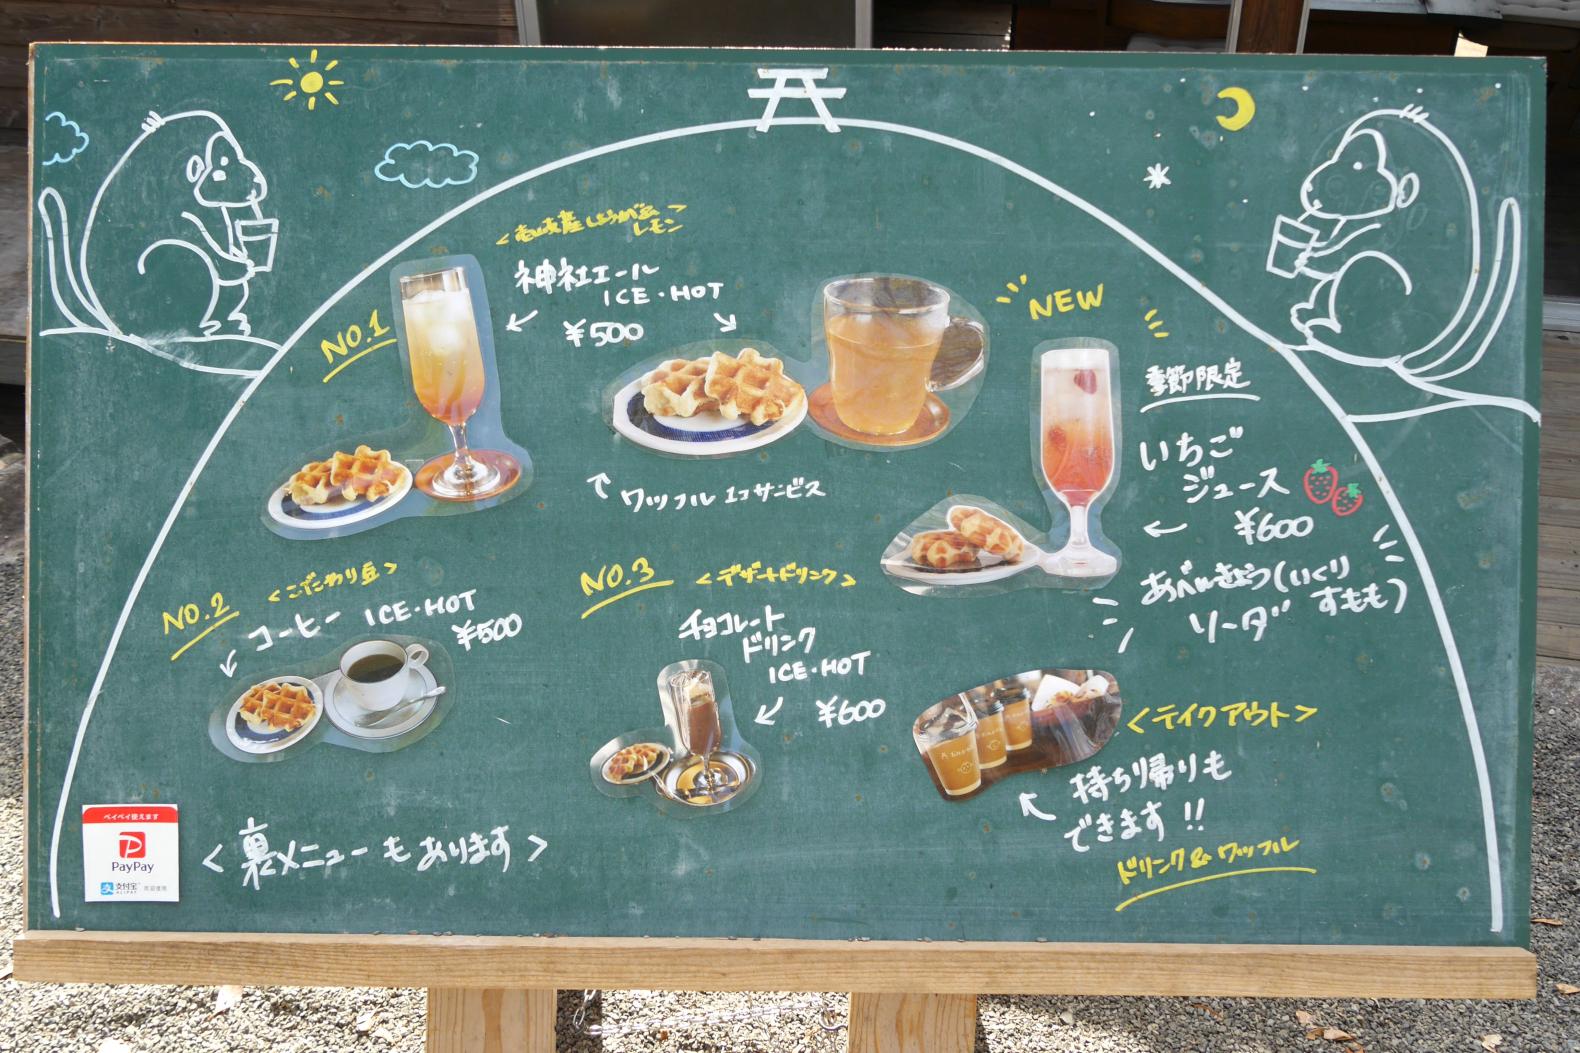 <壱岐産しょうが&
レモン>
神社エール
ICE・HOT
¥500
NO.1
NEW
季節限定
いちご
ジュース
¥600
ワッフル1コサービス
あべんきょう(いくり
すもも)
ソーダ
NO.2
<こだわり豆>
コーヒー ICE・HOT
¥500
NO.3
<デザートドリンク>
チョコレート
ドリンク
ICE・HOT
¥600
<テイクアウト>
持ち帰りも
できます!!
ドリンク&ワッフル
<裏メニューもあります>
ペイペイ使えます
PayPay
支付宝
ALIPAY